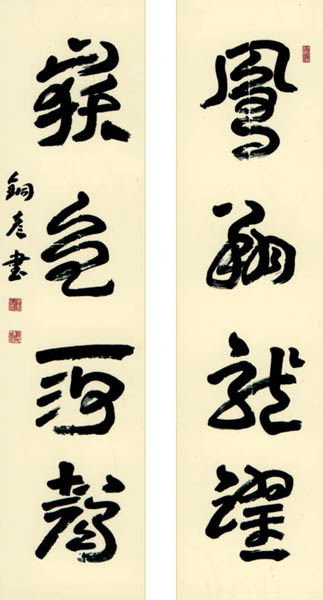 鳳翔龍躍
嶽色河聲
銅彥書